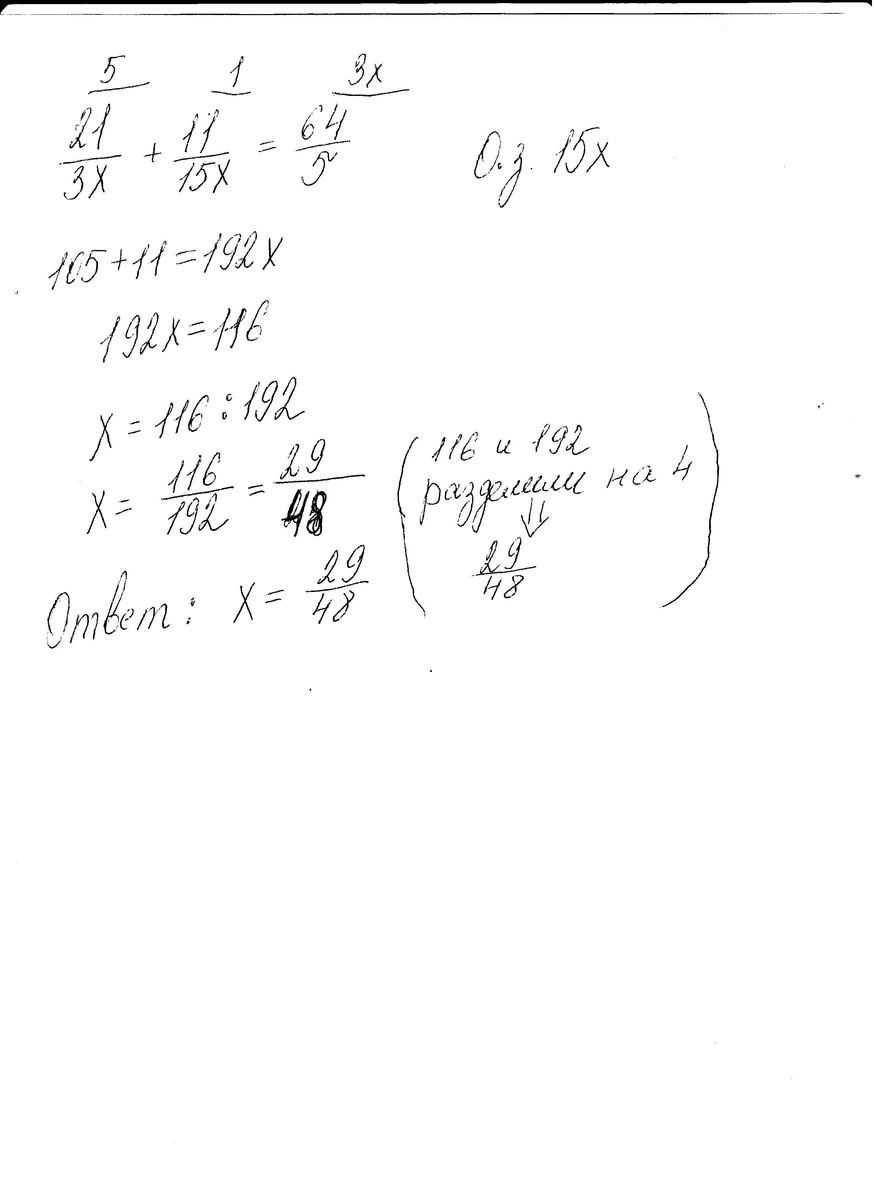 5 1 3x
21/3x + 11/15x = 64/5 О.з. 15x
105+11=192x
192x=116
x=116:192
x= 116/192 = 29/48 (116 и 192
разделили на 4
⇓
29/48)
Ответ: x= 29/48